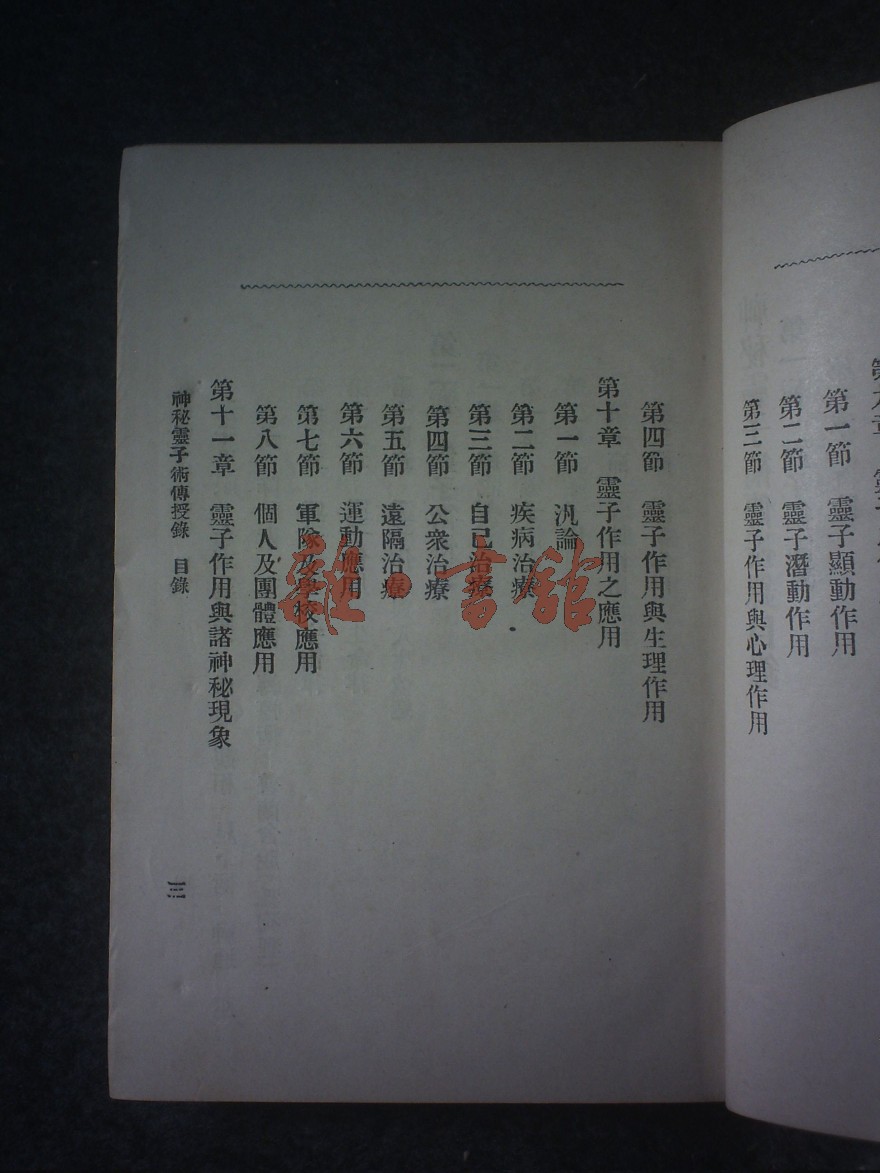 第一節　靈子顯動作用
第二節　靈子潛動作用
第三節　靈子作用與心理作用
第四節　靈子作用與生理作用
第十章　靈子作用之應用
第一節　汎論
第二節　疾病治療
第三節　自己治療
第四節　公衆治療
第五節　遠隔治療
第六節　運動應用
第七節　軍隊及學校應用
第八節　個人及團體應用
第十一章　靈子作用與諸神秘現象
神秘靈子術傳授錄　目錄
三
雜·書館